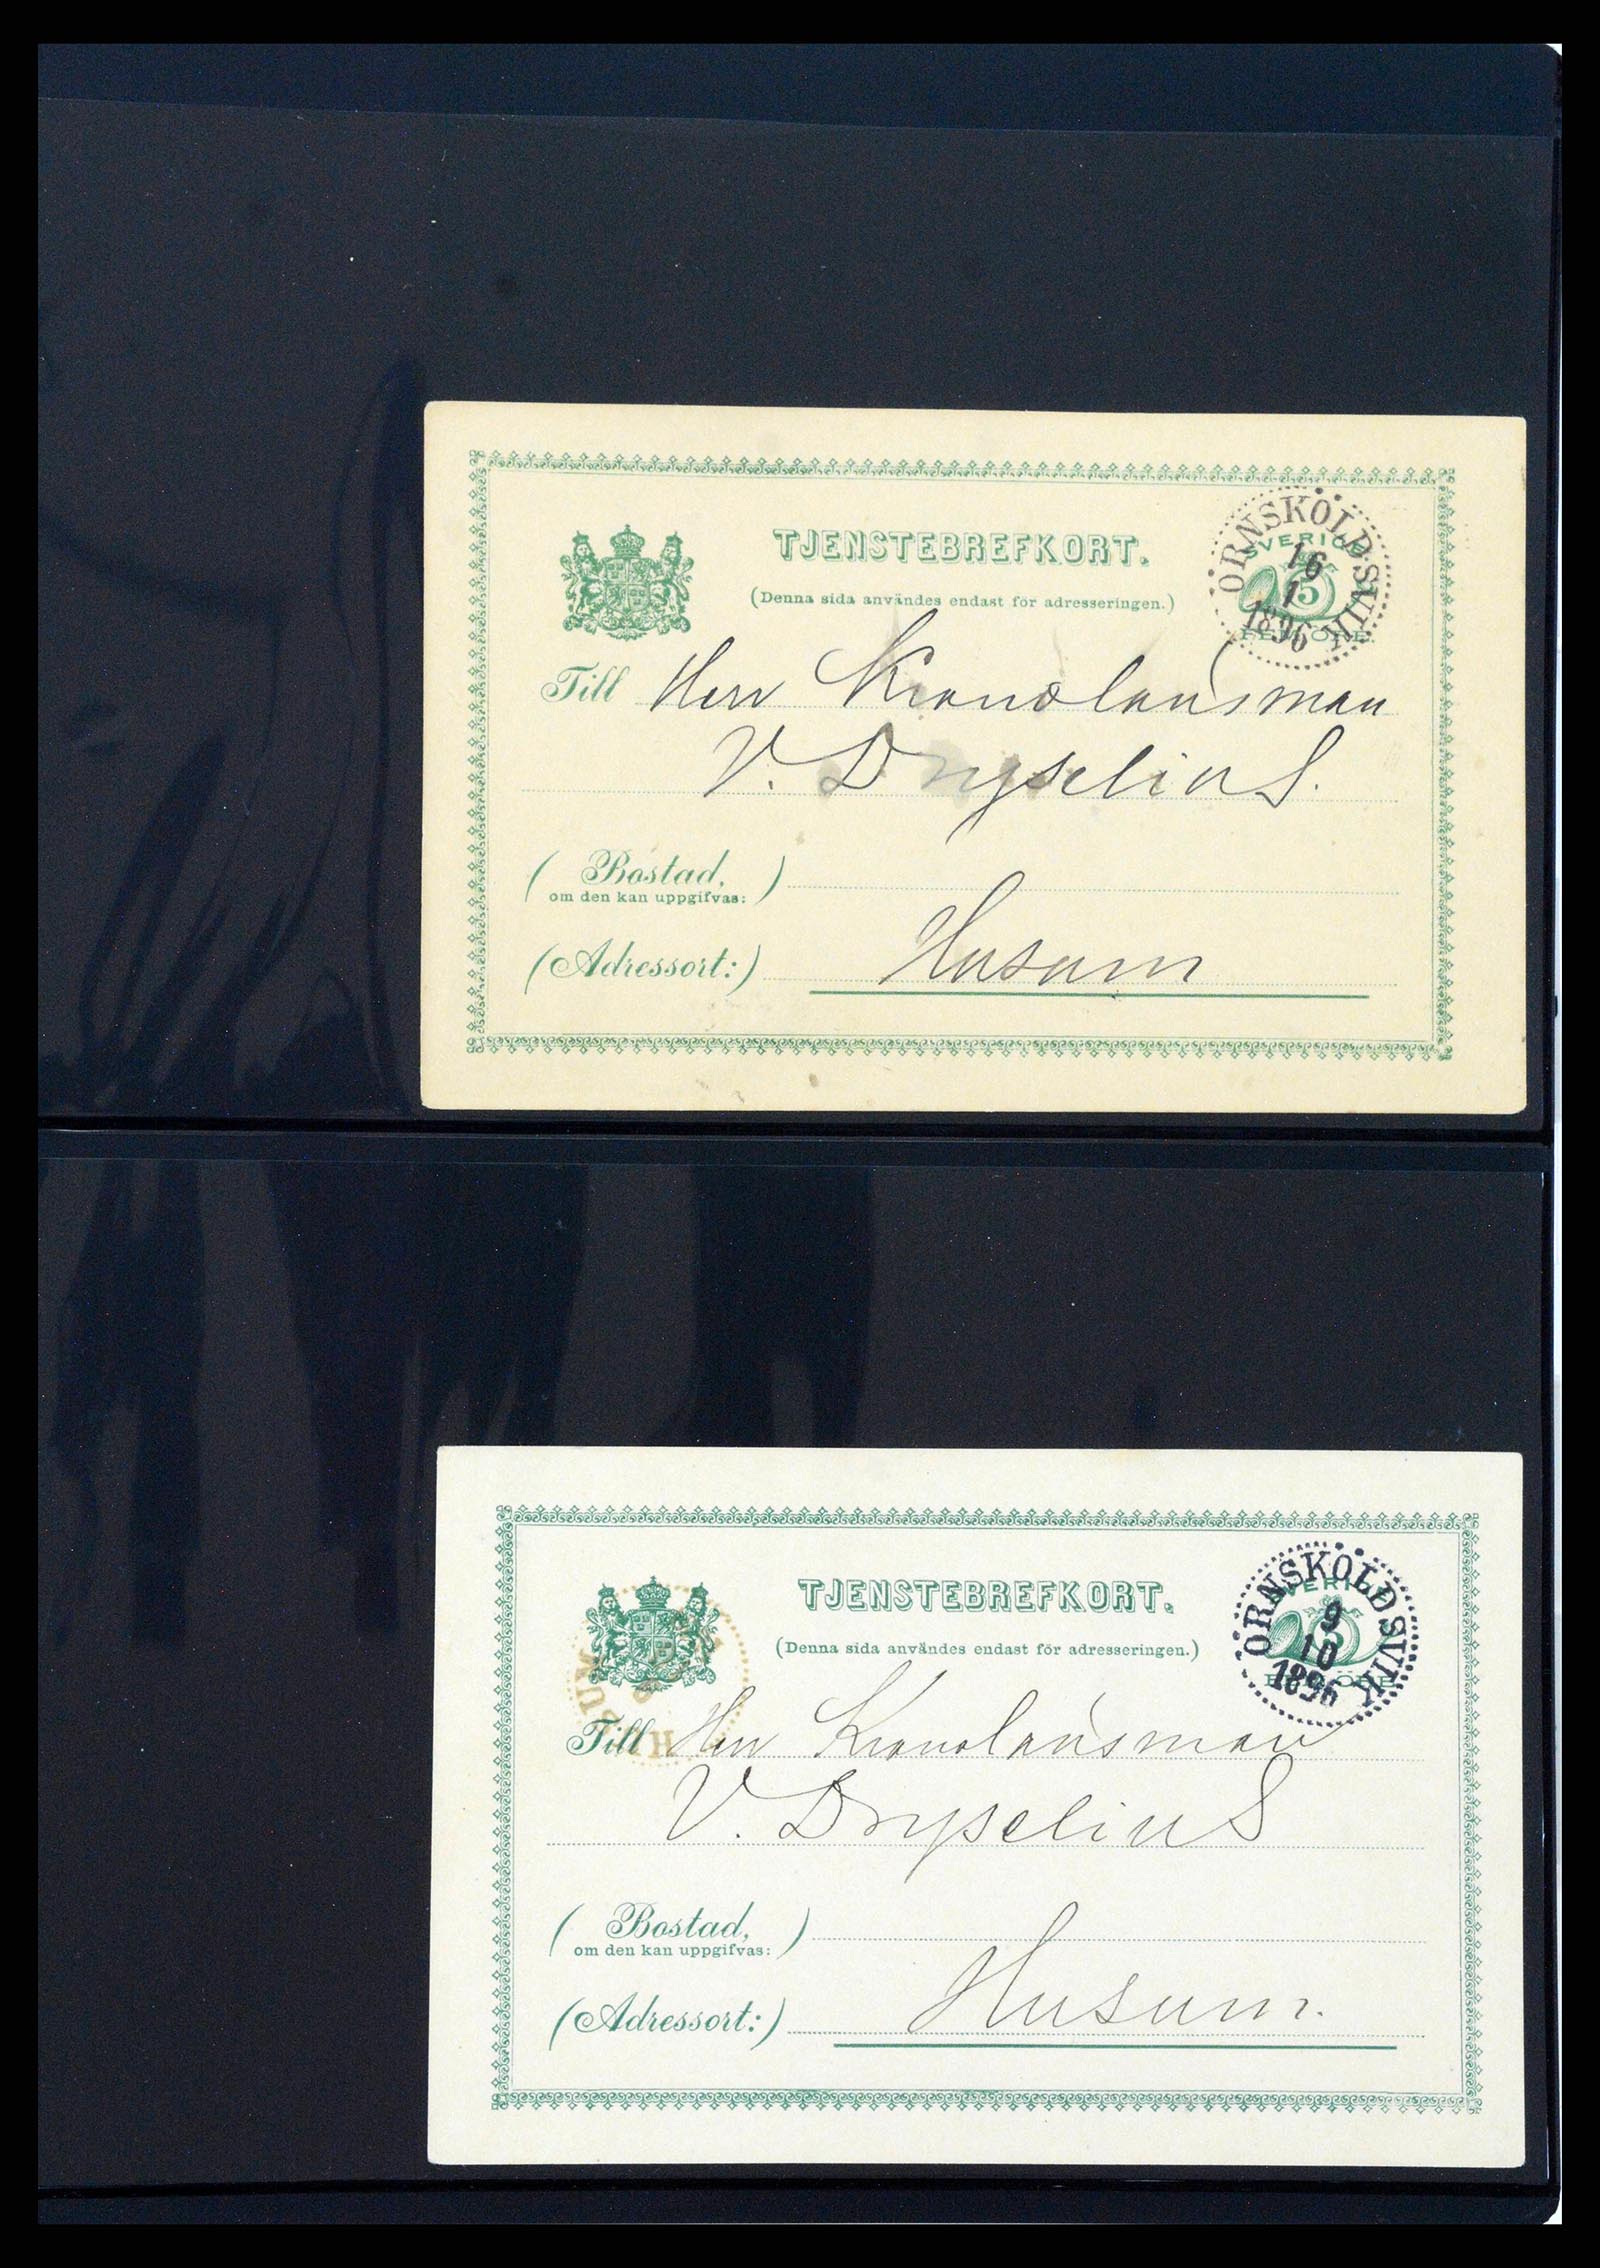 TJENSTEBREFKORT.
(Denna sida användes endast för adresseringen.)
ÖRNSKÖLDSVIK
16
1
1896
SVERIGE
5
FEM ÖRE
Till Herr Kronolänsman
V. Dryselius.
( Bostad, )
om den kan uppgifvas:
(Adressort:) Husum
TJENSTEBREFKORT.
(Denna sida användes endast för adresseringen.)
ÖRNSKÖLDSVIK
9
10
1896
SVERIGE
5
FEM ÖRE
HUSUM
Till Herr Kronolänsman
V. Dryselius
( Bostad, )
om den kan uppgifvas:
(Adressort:) Husum.